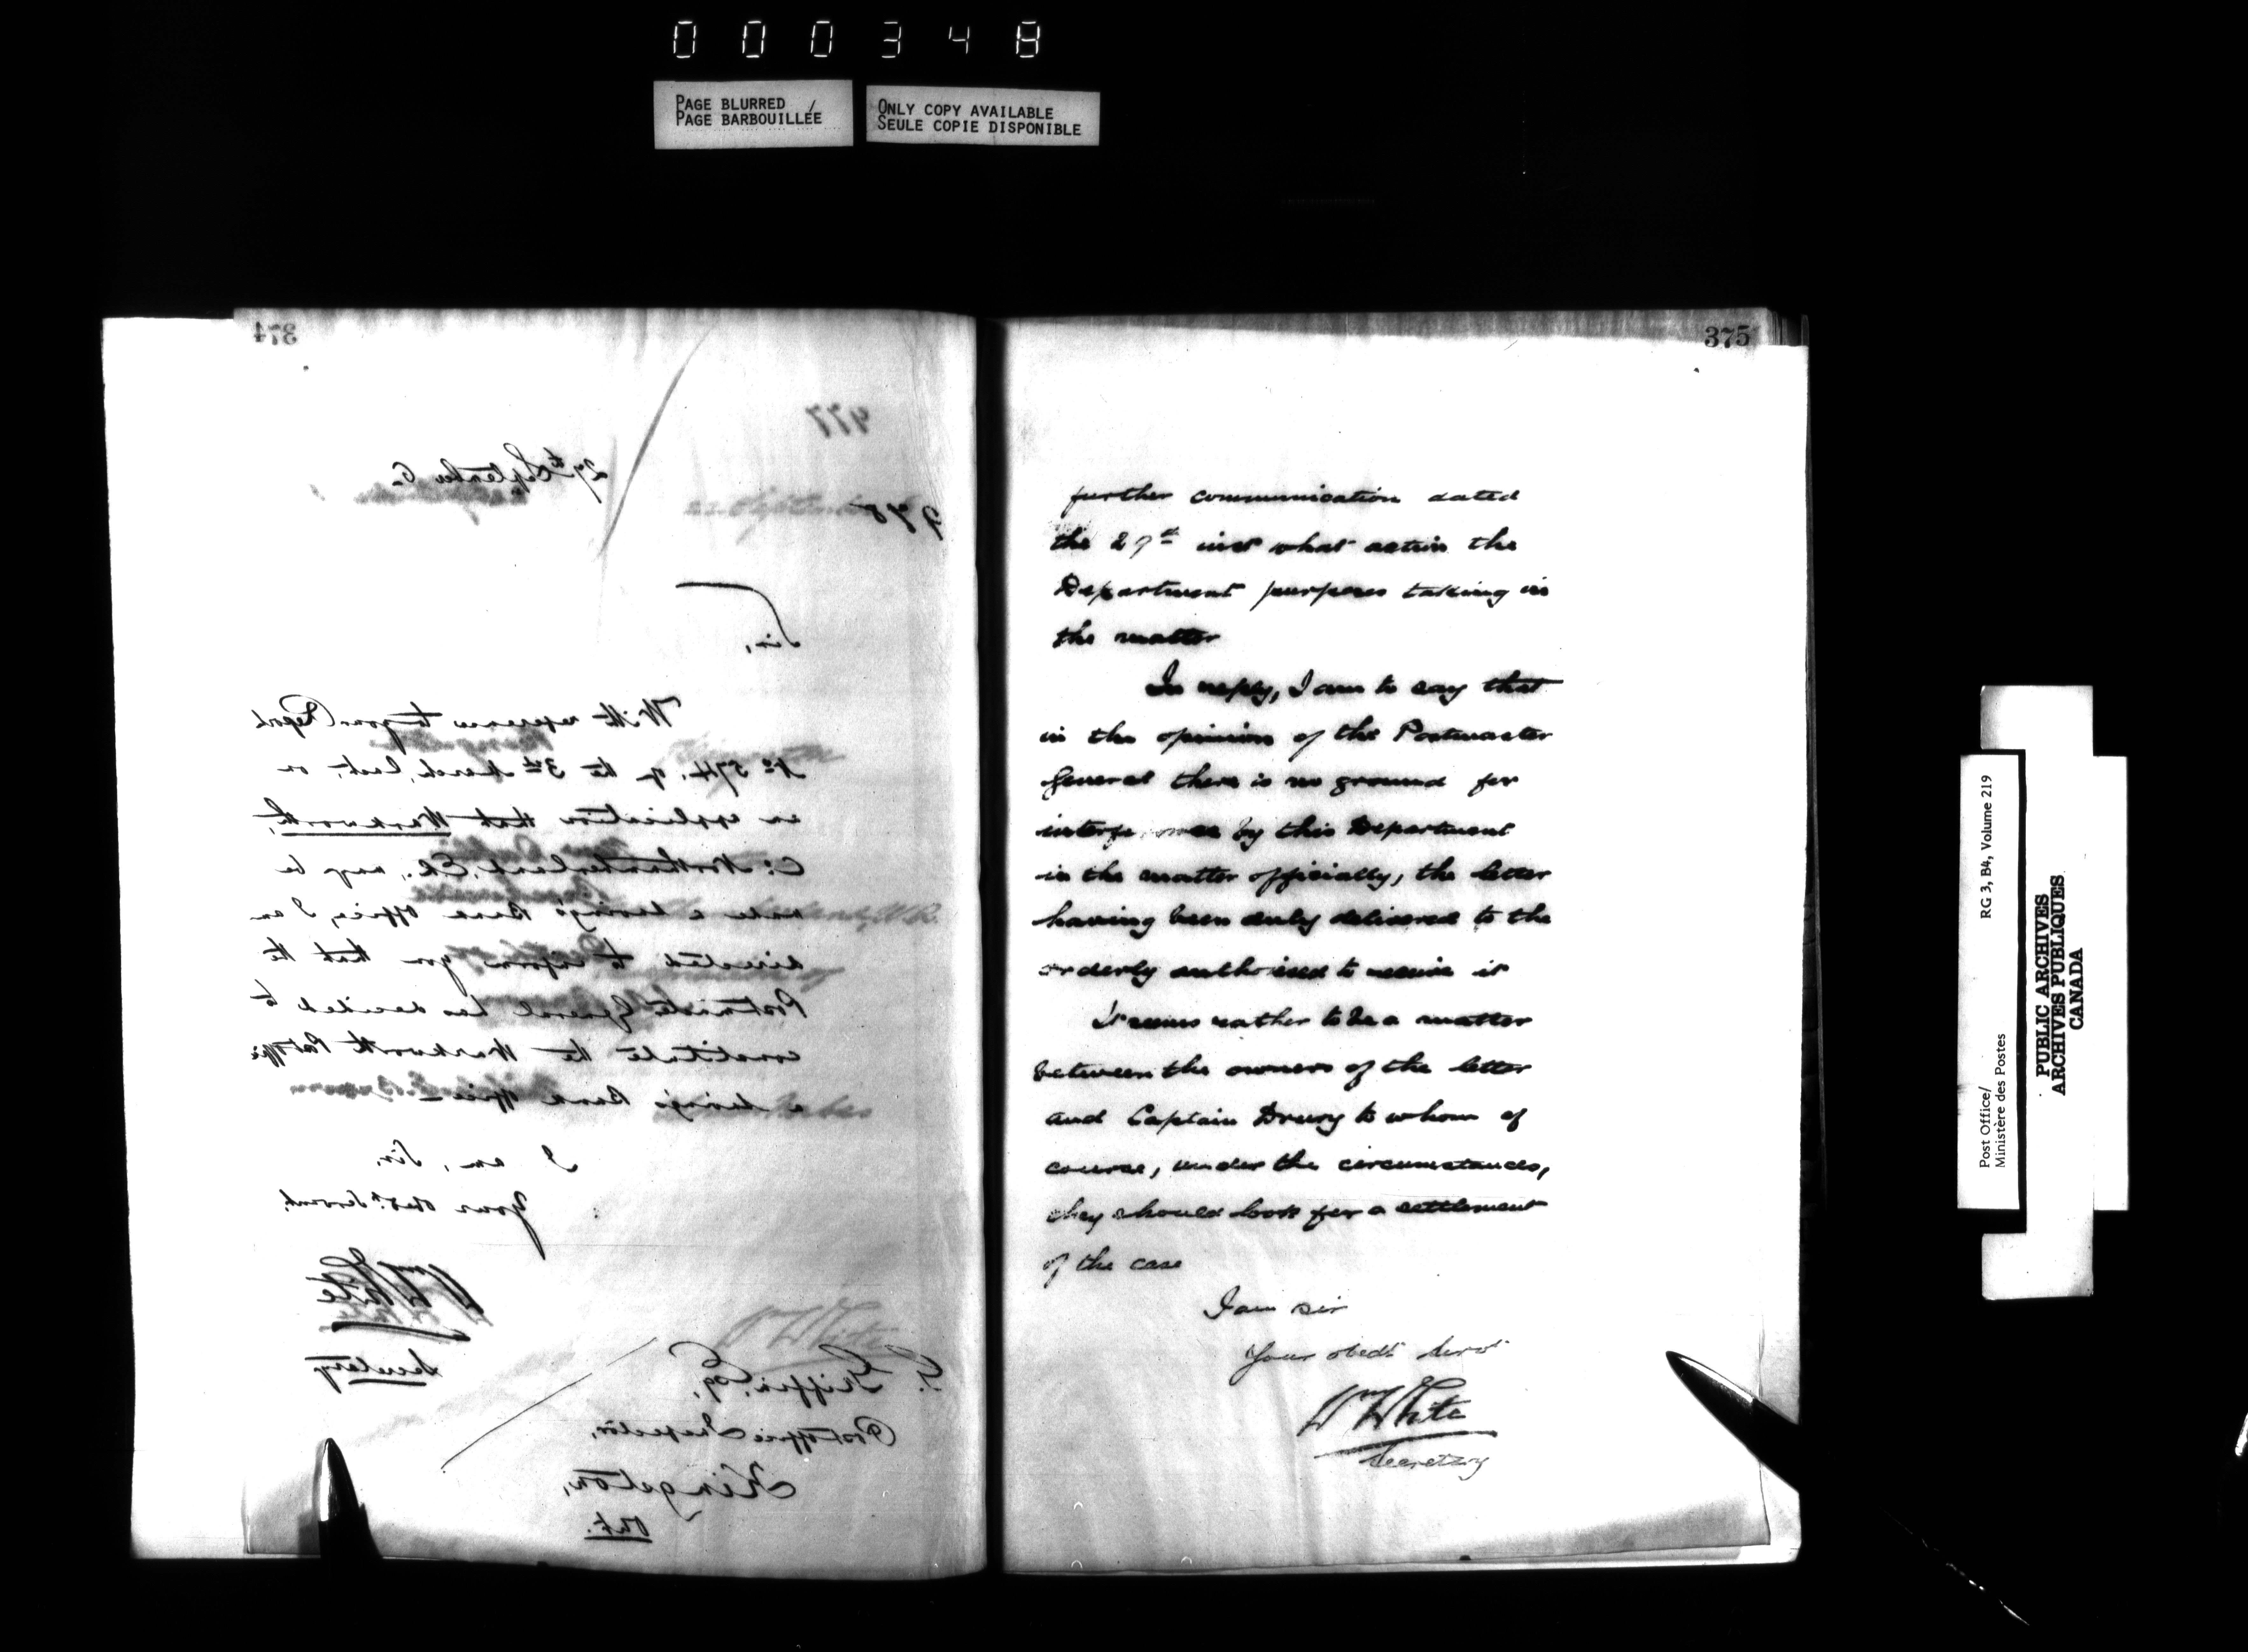 000348
PAGE BLURRED
PAGE BARBOUILLÉE
ONLY COPY AVAILABLE
SEULE COPIE DISPONIBLE
374
977
27th September 6.
978
Sir,
With reference to your Report
No 574, of the 3rd March, last, on
an application that Warkworth,
Co: Northumberland, E.R., may be
made a Saving's Bank Office, I am
directed to inform you that the
Postmaster General has decided to
constitute the Warkworth Post Office
a Saving's Bank Office —
I am, Sir,
Your obt. Servant.
Wm White
Secretary
G. Griffin, Esq,
Post Office Inspector,
Kingston,
Ont.
375
further communication dated
the 27th inst what action the
Department purposes taking in
the matter
In reply, I am to say that
in the opinion of the Postmaster
General there is no ground for
by this Department
in the matter officially, the letter
having been duly delivered to the
orderly authorised to receive it
It seems rather to be a matter
between the owners of the letter
and Captain Drury to whom of
course, under the circumstances,
they should look for a settlement
of the case
I am sir
Your obedt Servt
Wm White
Secretary
Post Office/
Ministère des Postes
RG 3, B4, Volume 219
PUBLIC ARCHIVES
ARCHIVES PUBLIQUES
CANADA